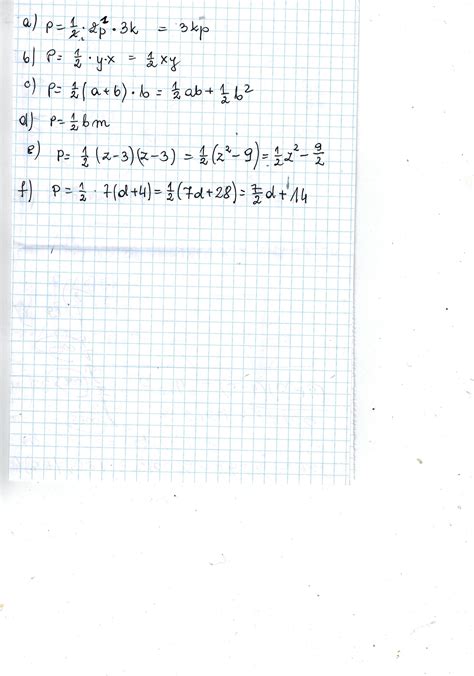 a) P = 1/2 · 2p¹ · 3k = 3kp
b) P = 1/2 · y · x = 1/2 xy
c) P = 1/2 (a + b) · b = 1/2 ab + 1/2 b²
d) P = 1/2 bm
e) P = 1/2 (z - 3)(z - 3) = 1/2 (z² - 9) = 1/2 z² - 9/2
f) P = 1/2 · 7(d + 4) = 1/2 (7d + 28) = 7/2 d + 14